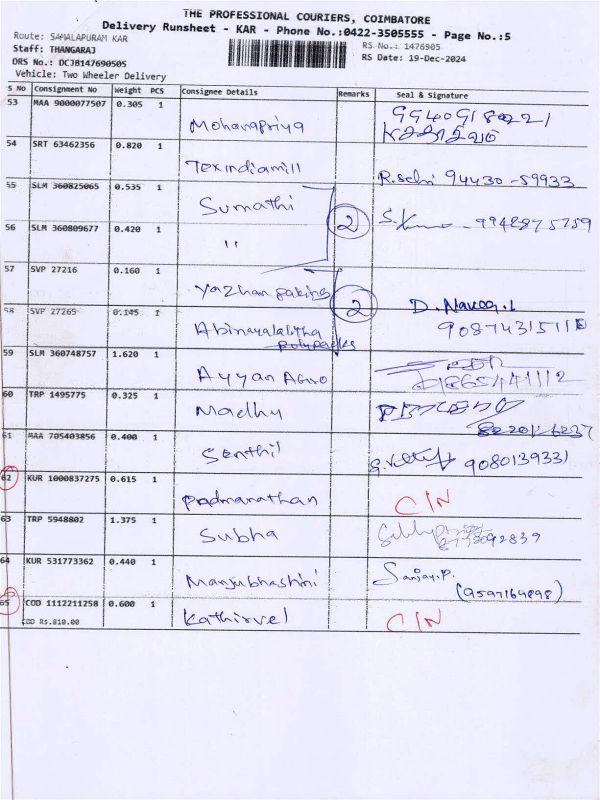 THE PROFESSIONAL COURIERS, COIMBATORE
Delivery Runsheet - KAR - Phone No.:0422-3505555 - Page No.:5
Route: SAMALAPURAM KAR
Staff: THANGARAJ
RS No.: 1476905
DRS No.: DCJB147690505
RS Date: 19-Dec-2024
Vehicle: Two Wheeler Delivery
S No Consignment No Weight PCS Consignee Details Remarks Seal & Signature
53 MAA 9000077507 0.305 1
Mohanapriya
54 SRT 63462356 0.820 1
Texindiamill R.selvi 94430-59933
55 SLM 360825065 0.535 1
Sumathi 2 9942875759
56 SLM 360809677 0.420 1
"
57 SVP 27216 0.160 1
Yazhan 2
58 SVP 27265 0.145 1
Abinayalalitha polypacks
59 SLM 360748757 1.620 1
Ayyan Agro
60 TRP 1495775 0.325 1
Madhu
61 MAA 705403856 0.400 1
Senthil 9080139331
62 KUR 1000837275 0.615 1
Padmanathan C/N
63 TRP 5948802 1.375 1
Subha
64 KUR 531773362 0.440 1
Manjubhashini Sanjay.P.
(9597164898)
65 COD 1112211258 0.600 1
COD Rs.810.00 Kathirvel C/N